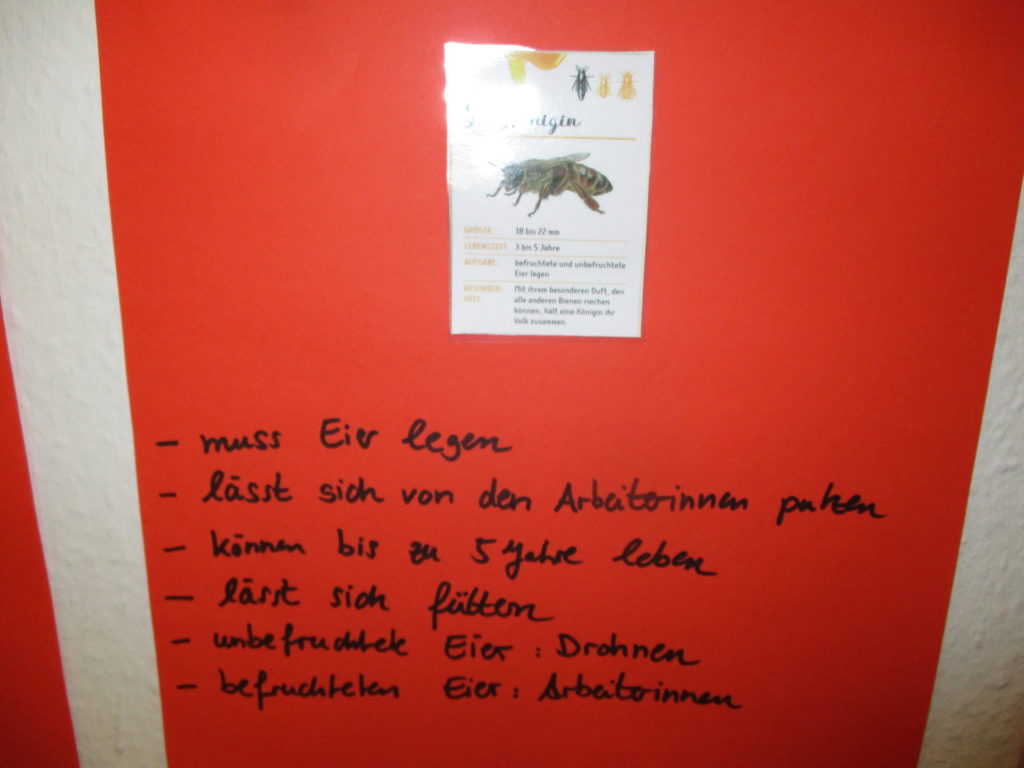 GRÖSSE: 18 bis 22 mm
LEBENSZEIT: 3 bis 5 Jahre
AUFGABE: befruchtete und unbefruchtete
Eier legen
BESONDER- Mit ihrem besonderen Duft, den
HEIT: alle anderen Bienen riechen
können, hält eine Königin ihr
Volk zusammen.
- muss Eier legen
- lässt sich von den Arbeiterinnen putzen
- können bis zu 5 Jahre leben
- lässt sich füttern
- unbefruchtete Eier : Drohnen
- befruchteten Eier : Arbeiterinnen